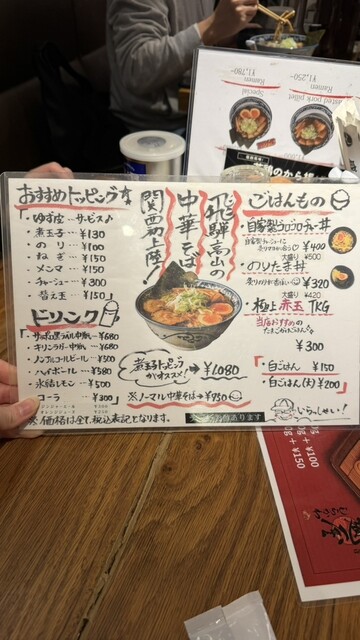 おすすめトッピング
・ゆず皮…サービス♪
・煮玉子…¥130
・のり…¥100
・ねぎ…¥150
・メンマ…¥150
・チャーシュー…¥300
・替え玉…¥150
ドリンク
・サッポロ黒ラベル中瓶…¥680
・キリンラガー中瓶…¥680
・ノンアルコールビール…¥500
・ハイボール…¥580
・氷結レモン…¥500
・コーラ…¥300
※価格は全て税込表記となります。
飛騨高山の
中華そば
関西初上陸!
煮玉子トッピング
がオススメ!
¥1,080
※ノーマル中華そば→¥950
あります
ごはんもの
・自家製ゴロゴロチャー丼
¥400
大盛り ¥500
・のりたま丼
¥320
大盛り ¥420
・極上赤玉TKG
当店おすすめの
¥300
・白ごはん ¥150
・白ごはん(大) ¥200
いらっしゃい!
¥1,780-
Ramen
Special
¥1,250-
Ramen
Roasted pork pillet
¥100
+ ¥150